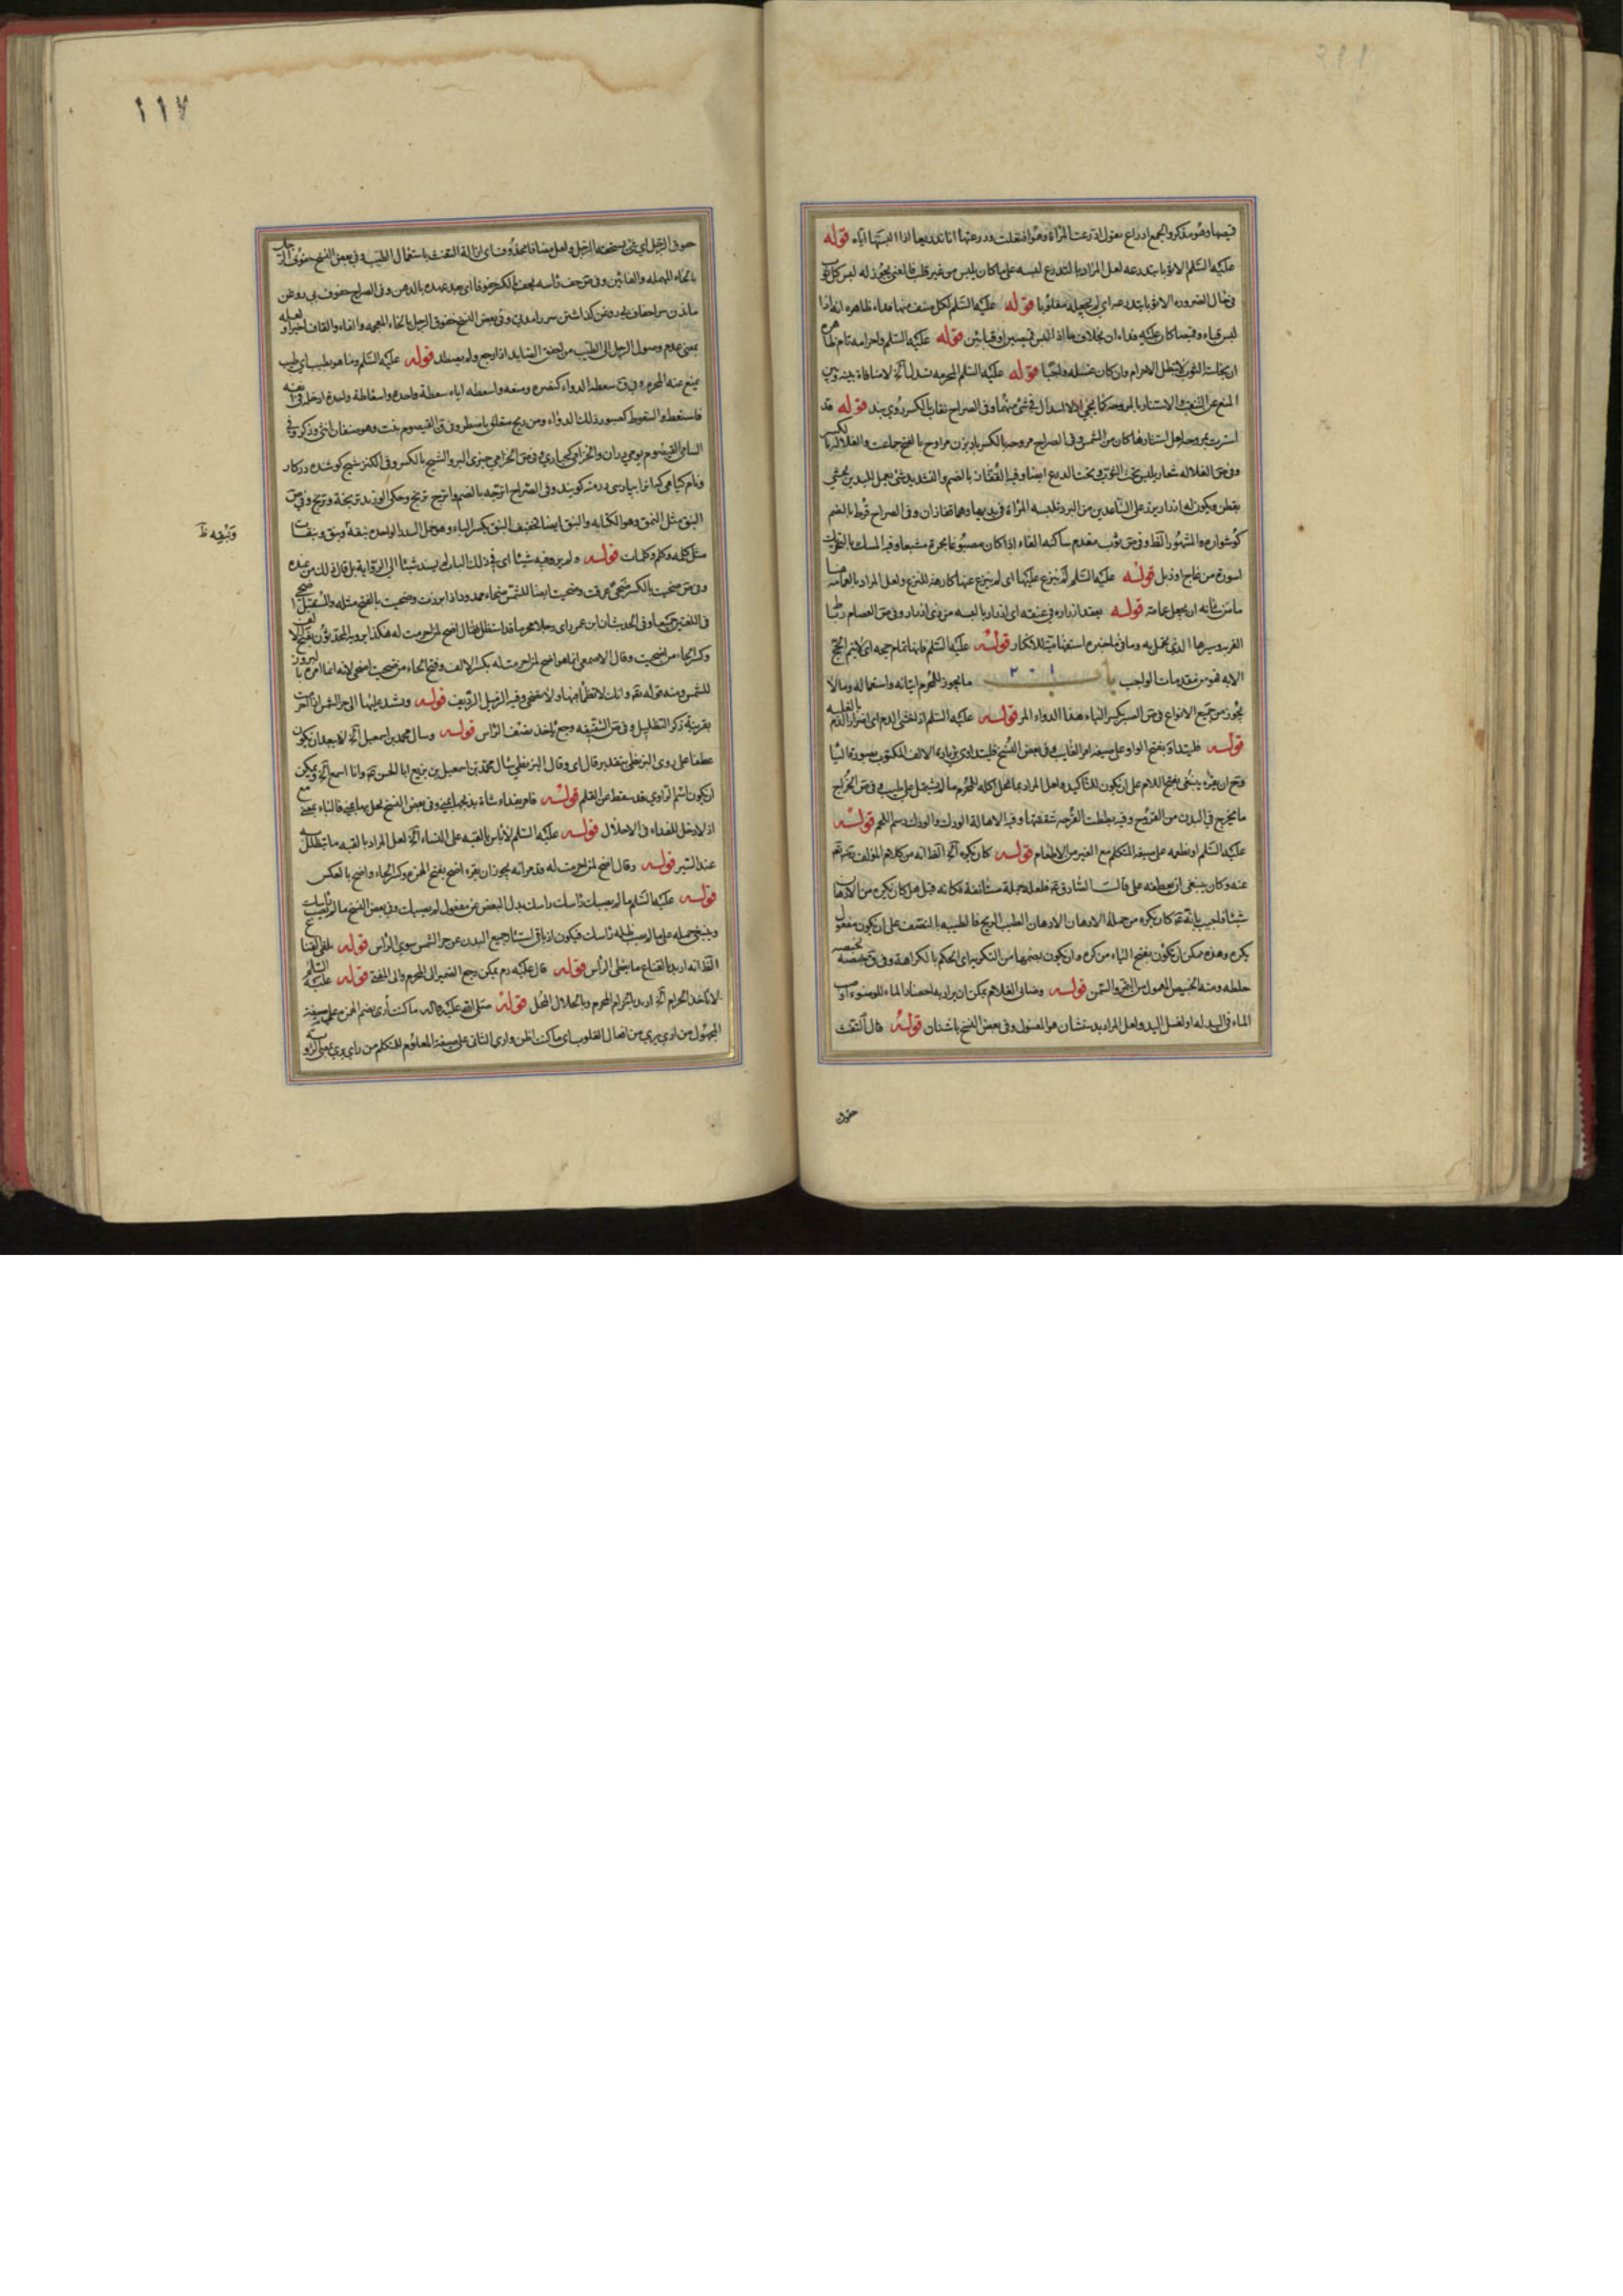 قميصها وهو مذكر والجمع ادراع تقول ادرعت المراة وهو افتعلت ودرعتها انا تدريعا اذا البستها اياه قوله
عليه السلم الا ثوبا يتدرعه لعل المراد بالتدرع لبسه على ما كان يلبس من غير قلب فالمعنى يجوز له لبس كل ثوب
فى حال الضروره الا ثوبا يتدرعه اى لم يجعله مقلوبا قوله عليه السلم لكل صنف منها فداء ظاهره انه اذا
لبس قباء وقميصا كان عليه فداءان بخلاف ما اذا لبس قميصين او قبائين قوله عليه السلم واحرامه تام ظاهره
ان نجاسة الثوب لا تبطل الاحرام وان كان غسله واجبا قوله عليه السلم المحرمه تسدل الخ لا منافاة بينه وبين
المنع عن النقاب والاستتار بالمروحه كما يجئ اذ لا اسدال فى شئ منهما وفى الصراح نقاب بالكسر روى بند قوله قد
استترت بمروحه لعل استتارها كان من الشمس وفى الصراح مروحه بالكسر باد بزن مراوح بالفتح جماعت والغلاله بالكسر
وفى ص الغلاله شعار يلبس تحت الثوب وتحت الدرع ايضا وفيه القفاز بالضم والتشديد شئ يعمل لليدين يحشى
بقطن ويكون له ازرار يزر على الساعدين من البرد تلبسه المراة فى يديها وهما قفازان وفى الصراح قرط بالضم
كوشواره والمشهور الفظ وفى ص ثوب مفدم ساكنه الفاء اذا كان مصبوغا بحمرة مشبعا وفيه المسك بالتحريك
اسورة من عاج او ذبل قوله عليه السلم لم ينزع عليها اى لم ينزع عنها كارهة للنزع ولعل المراد بالعمامة
ما من شانه ان يجعل عمامة قوله يعقد ازاره فى عنقه اى ازار ما لبسه من ذى ازرار وفى ص العصام رباط
القربه وسيرها الذى تحمل به وما فى ما احتبره استفهامية للانكار قوله عليه السلم فانها تمام حجه اى لا يتم الحج
الا به فهو من مقدمات الواجب باب ٢٠١ ما يجوز للمحرم اتيانه واستعماله وما لا
يجوز من جميع الانواع فى ص الصبر بكسر الباء هذا الدواء المر قوله عليه السلم اذا خشى الدم اى اضرار الدم بالغلبه
قوله فليتداو بفتح الواو على صيغه امر الغايب وفى بعض النسخ فليتداوى بزيادة الالف المكتوب بصورة الياء
ما يخرج فى البدن من القروح وفيه بططت القرحه شققتها وفيه الاهالة الودك والودك دسم اللحم قوله
عليه السلم او نطعمه على صيغه المتكلم مع الغير من الاطعام قوله كان يكره الخ الظ انه من كلام المؤلف
عنه وكان ينبغى ان يعطفه على قالت الصادق ع فلعله جملة مستانفة فكانه قيل هل كان يكره من الادهان
شيئا فاجيب بانه ع كان يكره من جملة الادهان الادهان الطيب الريح فالطيبه بالنصب على ان يكون مفعول
يكره وهذه ممكن ان يكون بفتح الياء من كره وان يكون بضمها من التكريه اى الحكم بالكراهة وفى ق خبصه يخبصه
خلطه ومنه الخبيص المعمول من التمر والسمن قوله وضانى الغلام يمكن ان يراد به احضار الماء للوضوء او صب
الماء فى اليد له او لغسل اليد ولعل المراد بدستشان هو الغسول وفى بعض النسخ باشنان قوله قال التفث
حفوف
١١٧
حفوف الرجل اى شئ يستحقه الرجل ولعل مضافا محذوف اى ازالة التفث باستعمال الطيب وفى بعض النسخ حفوف الرجل
بالحاء المهمله والفائين وفى ص حف راسه يحف بالكسر حفوفا اى بعد عهده بالدهن وفى الصراح حفوف بى روغن
ماندن سر احفاف بى روغن كذاشتن سر را مدتى وفى بعض النسخ خفوق الرجل بالخاء المعجمه والفاء والقاف اخيرا ولعله
بمعنى عدم وصول الرجل الى الطيب من اخفق الصايد اذا رجع ولم يصطد قوله عليه السلم وما هو بطيب اى طيب
يمنع عنه المحرم وفى ق سعطه الدواء كمنعه ونصره واسعطه اياه سعطة واحدة واسعاطة واحدة ادخله فى انفه
فاستعط والسعوط كصبور ذلك الدواء
السامى القيصوم بوى مادران والخزامى كحبارى وفى ص الخزامى خيرى البر والشيح بالكسر وفى الكنز شيح كوشنده در كار
ونام كياهى كه انرا بپارسى درمنه كويند وفى الصراح اترجه بالضم واترج ترنج وحكى ابو زيد ترنجة وترنج وفى ص
النبق مثل النمق وهو الكتابه والنبق ايضا تخفيف النبق بكسر الباء وهو حمل السدر الواحده نبقة ونبق ونبقات
ونبقه ظ
مثل كلمه وكلم وكلمات قوله ولم يرو فيه شيئا اى فى ذلك الباب لم يسند شيئا الى الرواية بل قال ذلك من عنده
وفى ص ضحيت بالكسر ضحى عرقت وضحيت ايضا للشمس ضحاء ممدود اذا برزت وضحيت بالفتح مثله والمستقبل اضحى
فى اللغتين جميعا وفى الحديث ان ابن عمر راى رجلا محرما قد استظل فقال اضح لمن احرمت له هكذا يرويه المحدثون بفتح الالف
وكسر الحاء من اضحيت وقال الاصمعى انما هو اضح لمن احرمت له بكسر الالف وفتح الحاء من ضحيت اضحى لانه انما امره بالبروز
للشمس ومنه قوله تع وانك لا تظمأ فيها ولا تضحى وفيه الزميل الرديف قوله وتشتد عليها الى حر الشمس
بقرينة ذكر التظليل وفى ص الشقيقه وجع ياخذ نصف الراس قوله وسال محمد بن اسمعيل الخ لا يبعد ان يكون
عطفا على روى البزنطى بتقدير قال اى وقال البزنطى سال محمد بن اسمعيل بن بزيع ابا الحسن ع وانا اسمع الخ ويمكن
ان يكون اسم الراوى قد سقط عن القلم قوله فامر بفداء شاة يذبحها بمنى وفى بعض النسخ لعل بها بمنى فالباء بمعنى مع
اذ لا دخل للفداء فى الاحلال قوله عليه السلم لا باس بالقبه على النساء الخ لعل المراد بالقبه ما يتظلل به
عند السير قوله وقال اضح لمن احرمت له وقد مر انه يجوز ان يقرء اضح بفتح الهمزه وكسر الحاء واضح بالعكس
قوله عليه السلم ما لم يصبك راسك راسك بدل البعض عن مفعول لم يصبك وفى بعض النسخ ما لم يصب راسك
وينبغى حمله على ما لم يصب ظله راسك فيكون اذ باقى استتار جميع البدن عن حر الشمس سوى الراس قوله يلقى القناع
الظ انه اريد بالقناع ما يغطى الراس قوله قال عليه دم يمكن رجع الضمير الى المحرم والى المفتى قوله عليه السلم
لا تاخذ الحرام الخ اريد بالحرام المحرم وبالحلال المحل قوله صلى الله عليه واله ما كنت أرى بضم الهمزه على صيغة
المجهول من ارى يرى من افعال القلوب اى ما كنت اظن وارى الثانى على صيغة المعلوم للمتكلم من راى يرى بمعنى الرؤيه